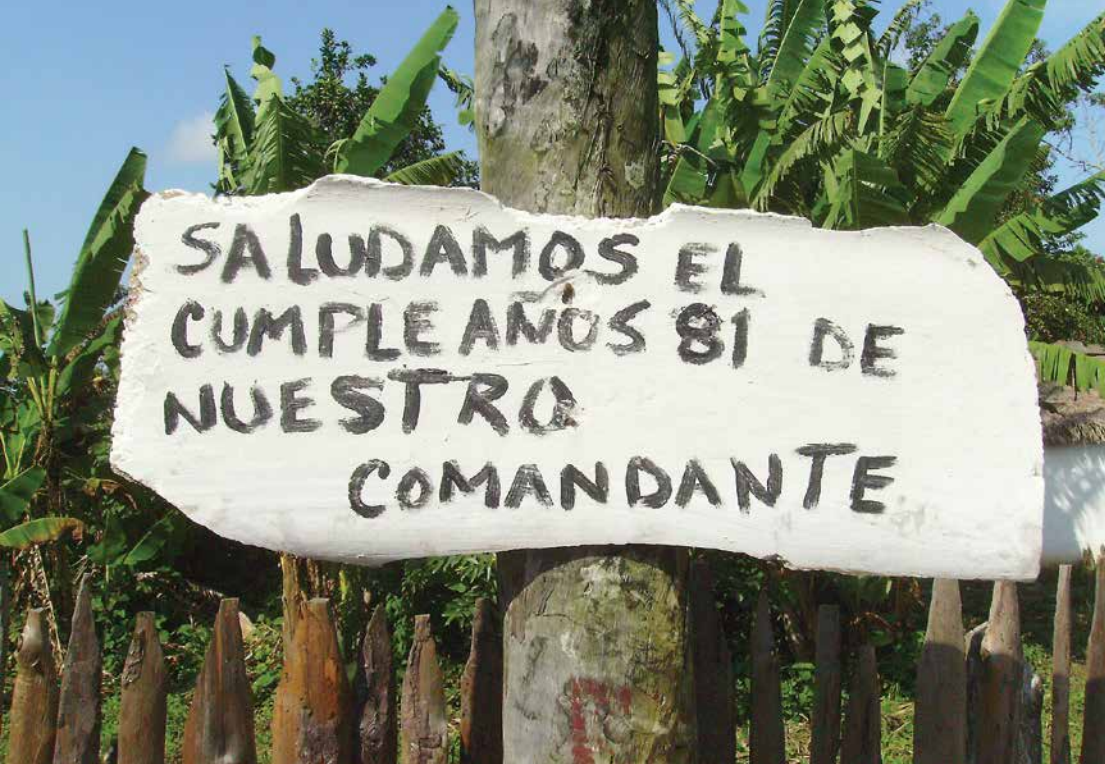 SALUDAMOS EL
CUMPLEAÑOS 81 DE
NUESTRO
COMANDANTE